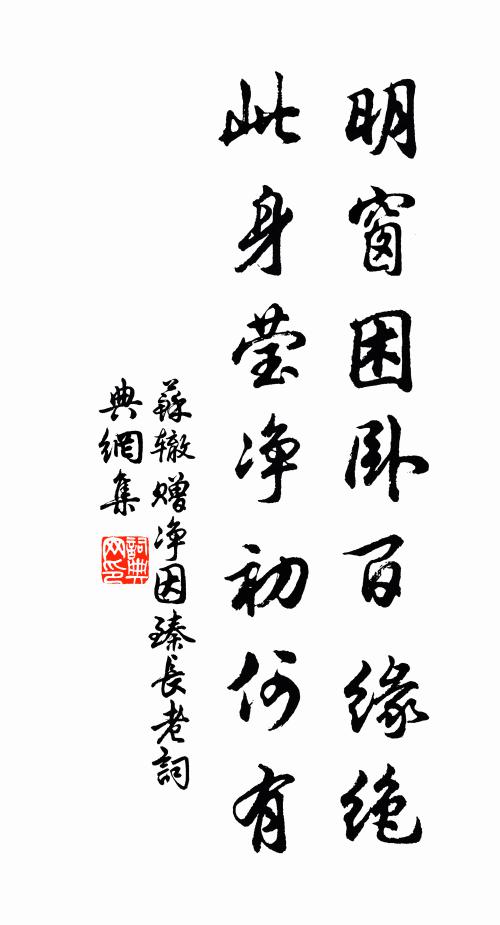 明窗困卧百缘绝
此身莹净初何有
蘇辙赠净因臻長老詞
典網集
詞典网印